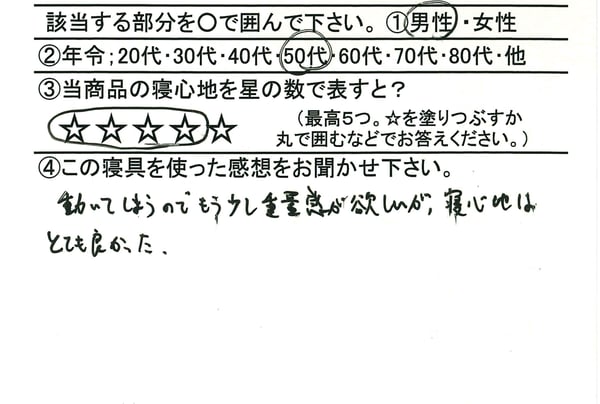 該当する部分を〇で囲んで下さい。①男性・女性
②年令；20代・30代・40代・50代・60代・70代・80代・他
③当商品の寝心地を星の数で表すと？
☆☆☆☆☆ （最高５つ。☆を塗りつぶすか
丸で囲むなどでお答えください。）
④この寝具を使った感想をお聞かせ下さい。
動いてしまうのでもう少し重量感が欲しいが、寝心地は
とても良かった。